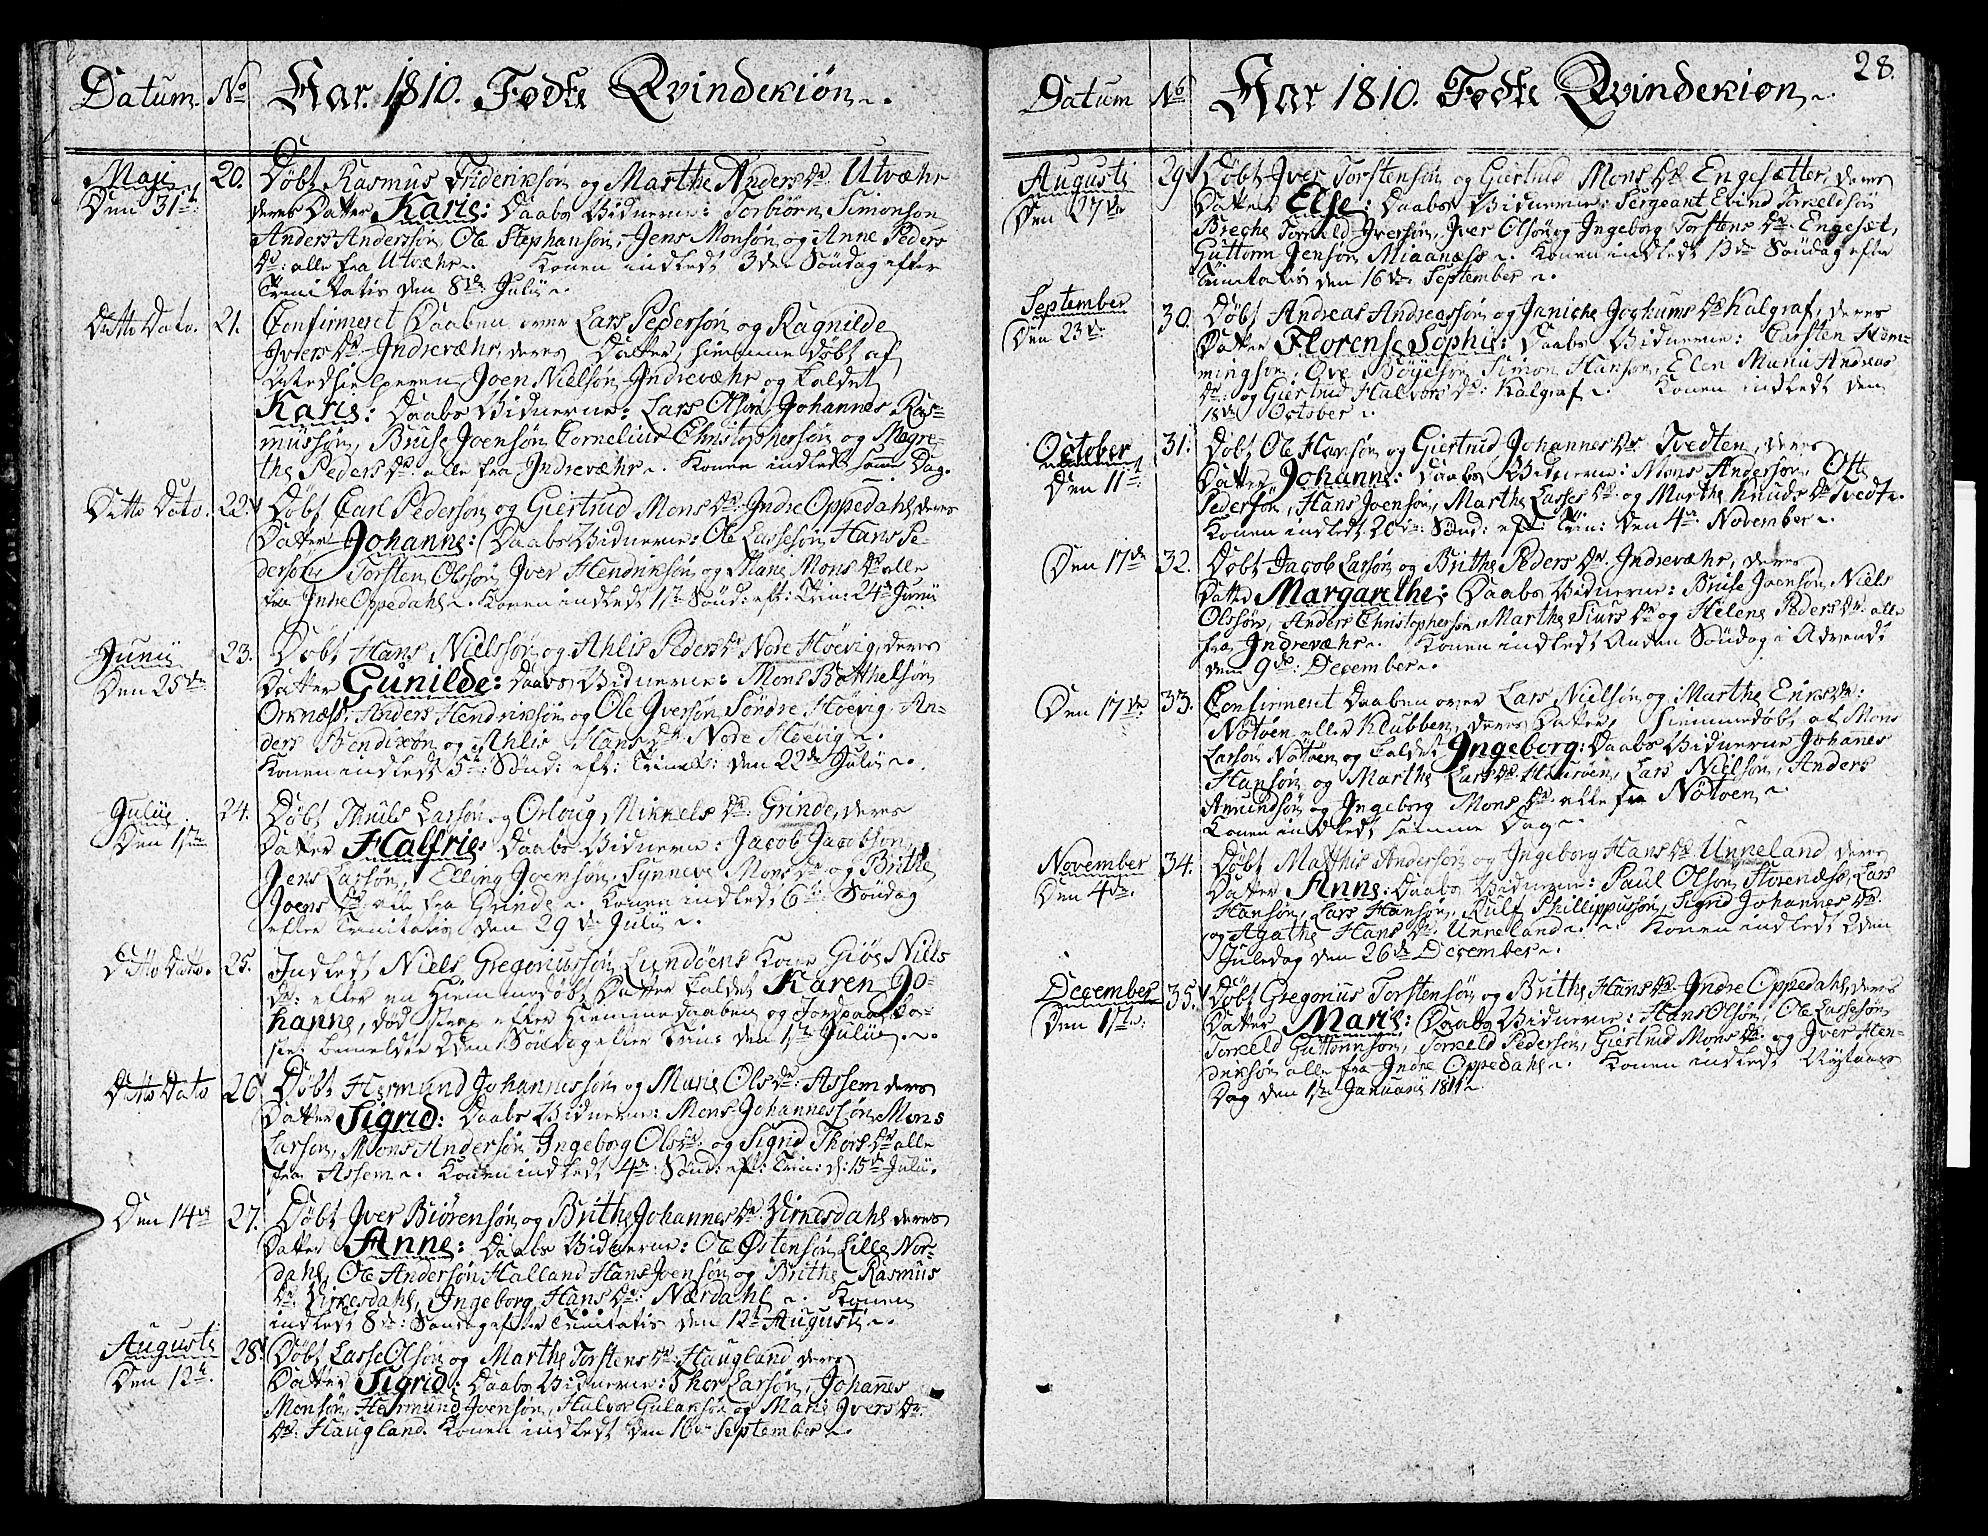 Datum No Aar. 1810. Fødte Qvindekiøn
Maji 20. Døbt Rasmus Friderikson og Marthe Anders Dr. Utvæhr
Den 31t. deres Datter Karie: Daabs Vidnerne: Torbiørn Simonson
Anders Anderssøn, Ole Stephansøn, Jens Monsøn og Anne Peders
Dr: alle fra Utvæhr. Konen indledt 3de Søndag efter
Trinitatis den 8de Julii.
Ditto Dato. 21. Confirmeret Daaben over Lars Pedersøn og Ragnilde
Ivers Dr. Indrevæhr, deres Datter, hiemme døbt af
Joen Nielsøn Indrevæhr og kaldet
Karie: Daabs Vidnerne: Lars Olsøn, Johannes Ras-
mussøn, Bruse Joensøn, Cornelius Christophersøn og Magre-
the Peders Dr. alle fra Indrevæhr. Konen indledt samme Dag.
Ditto Dato. 22. Døbt Carl Pedersøn og Giertrud Mons Dr. Indre Oppedahl, deres
Datter Johanne: Daabs Vidnerne: Ole Larssøn, Hans Pe-
dersøn, Torsten Olssøn, Iver Hendriksøn og Mons Dr. alle
fra Indre Oppedahl. Konen indledt 1te Sønd: eft: Trin: 24de Junii
Junii 23. Døbt Hans Nielssøn og Ahlis Peders Dr. Nore Høevig, deres
Den 25de Datter Gunilde: Daabs Vidnerne: Mons Botthelsøn
Ornæss, Anders Hendriksøn og Ole Iversøn Søndre Høevig, An-
ders Bendixøn og Ahlis Hans Dr. Nore Høevig.
Konen indledt 5te: Sønd: eft: Trinit: den 22de Julii.
Julii 24. Døbt Thuls Larsøn og Orloug Nikkels Dr. Grinde, deres
Den 1te Datter Halfrie: Daabs Vidnerne: Jacob Jacobsøn,
Jens Larsøn, Elling Joensøn, Synneve Mons Dr og Brithe
Joens Dr. alle fra Grinde. Konen indledt 6te: Søndag
efter Trinitatis den 29de Julii.
Ditto Dato. 25. Indledt Niels Gregoriussøn Lundøens Kone Giøs Niels
Dr: efter en Hiemmedøbt Datter kaldet Karen Jo-
hanne, død strax efter Hiemmedaaben og Jordpaaka-
stet bemeldte 2den Søndag efter Trin: den 1te Julii.
Ditto Dato 26. Døbt Hermund Johannessøn og Marie Ols Dr: Assem deres
Datter Sigrid: Daabs Vidnerne: Mons Johannessøn, Mons
Larsøn, Mons Andersøn, Ingeborg Ols Dr. og Sigrid Thors Dr alle
fra Assem. Konen indledt 4de: Sønd: eft: Trin: d: 15de Julii.
Den 14de 27. Døbt Iver Biørensøn og Brithe Johannes Dr. Virkesdahl deres
Datter Anne: Daabs Vidnerne: Ole Østensøn Lille Nor-
dahl, Ole Andersøn Halland, Hans Joensøn og Brithe Rasmus
Dr. Virkesdahl, Ingeborg Hans Dr: Nærdahl. Konen
indledt 8de: Søndag efter Trinitatis den 12te Augusti.
Augusti 28. Døbt Lasse Olsøn og Marthe Torstens Dr. Haugland deres
Den 12te. Datter Sigrid: Daabs Vidnerne: Thor Larsøn, Johannes
Monsøn, Hermund Joensøn, Halvor Gulaksøn og Marie Ivers Dr.
Dr. Haugland. Konen indledt den 16de September.
28.
Datum No Aar 1810. Fødte Qvindekiøn
Augusti 29. Døbt Iver Torstensøn og Giertrud Mons Dr. Engesætter, deres
Den 27de Datter Else: Daabs Vidnerne: Sergeant Evind Torkeldsøn
Breche, Torkeld Iversøn, Iver Olsøn og Ingeborg Torstens Dr. Engesæt,
Guttorm Jensøn Miaanæss. Konen indledt 13de Søndag efter
Trinitatis den 16de September.
September 30. Døbt Andreas Andreassøn og Janiche Jochums Dr Kalgraf, deres
Den 23de Datter Florense Sophie: Daabs Vidnerne: Carsten Hem-
mingsøn, Ove Bøyesøn, Simon Hansøn, Elen Maria Andreas
Dr. og Giertrud Halvors Dr: Kalgraf. Konen indledt den
18de October.
October 31. Døbt Ole Hansøn og Giertrud Johannes Dr. Tvedten, deres
Den 11t. Datter Johanne: Daabs Vidnerne: Mons Andersøn, Ole
Pedersøn, Hans Joensøn, Marthe Lasses Dr. og Marthe Knuds Dr Tvedte.
Konen indledt 20de: Sønd: eft: Trin: den 4de November.
Den 17de 32. Døbt Jacob Larsøn og Brithe Peders Dr. Indrevæhr, deres
Datter Margarethe: Daabs Vidnerne: Bruse Joensøn, Niels
Olssøn, Anders Christophersøn, Marthe Siurs Dr og Helene Peders Dr. alle
fra Indrevæhr. Konen indledt Anden Søndag i Advendt
den 9de: December.
Den 17de 33. Confirment Daaben over Lars Nielsøn og Marthe Eriks Dr:
Nøtøen eller Klubben, deres Datter, hiemmedøbt af Mons
Larsøn Nøtøen og kaldet Ingeborg: Daabs Vidnerne Johanes
Hansøn og Marthe Lars Dr. Lars Nielsøn, Anders
Amundsøn og Ingeborg Mons Dr. alle fra Nøtøen.
Konen indledt samme Dag.
November 34. Døbt Matthis Andersøn og Ingeborg Hans Dr. Unneland, deres
Den 4de. Datter Anne: Daabs Vidnerne: Paul Olsøn Storenæss, Lars
Hansøn, Lars Hansøn, Rulf Phillippussøn, Sigrid Johannes Dr.
og Agathe Hans Dr. Unneland. Konen indledt 2den
Juledag den 26de December.
December 35. Døbt Gregorius Torstensøn og Brithe Hans Dr. Indre Oppedahl, deres
Den 1te. Datter Marie: Daabs Vidnerne: Hans Olsøn, Ole Larssøn
Torkeld Guttormsøn, Torkeld Pedersøn, Giertrud Mons Dr. og Iver Hen-
driksøn alle fra Indre Oppedahl. Konen indledt Nytaars
Dag den 1te Januarii 1811.